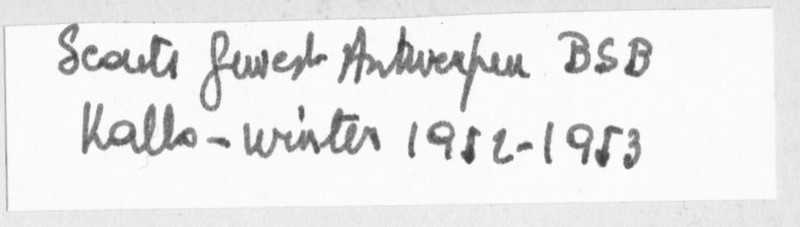 Scouts Gewest Antwerpen BSB
Kallo - winter 1952-1953